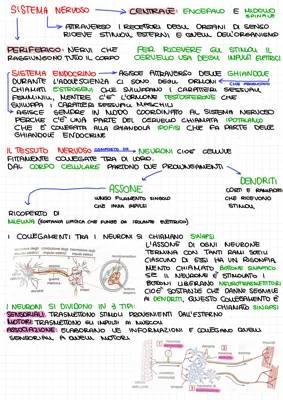 SISTEMA NERVOSO → CENTRALE: ENCEFALO E MIDOLLO SPINALE
ATTRAVERSO I RECETTORI DEGLI ORGANI DI SENSO
RICEVE STIMOLI, ESTERNI E QUELLI DELL'ORGANISMO
PERIFERICO: NERVI CHE RAGGIUNGONO TUTTO IL CORPO
PER RICEVERE GLI STIMOLI IL
CERVELLO USA DEGLI IMPULSI ELETTRICI
SISTEMA ENDOCRINO → AGISCE ATTRAVERSO DELLE GHIANDOLE
DURANTE L'ADOLESCENZA CI SONO DEGLI ORMONI
CHIAMATI ESTROGENI CHE SVILUPPANO I CARATTERI SESSUALI
FEMMINILI, MENTRE C'È L'ORMONE TESTOSTERONE CHE
SVILUPPA I CARATTERI SESSUALI MASCHILI
AGISCE SEMPRE IN MODO COORDINATO AL SISTEMA NERVOSO
PERCHÉ C'È UNA PARTE DEL CERVELLO CHIAMATA IPOTALAMO
CHE È COLLEGATA ALLA GHIANDOLA IPOFISI CHE FA PARTE DELLE
GHIANDOLE ENDOCRINE
IL TESSUTO NERVOSO COMPOSTO DA NEURONI CIOÈ CELLULE
FITTAMENTE COLLEGATE TRA DI LORO.
DAL CORPO CELLULARE PARTONO DUE PROLUNGAMENTI
ASSONE
LUNGO FILAMENTO SINGOLO
CHE INVIA IMPULSI
DENDRITI
CORTI E RAMIFICATI
CHE RICEVONO
STIMOLI
RICOPERTO DI
MIELINA (SOSTANZA LIPIDICA CHE FUNGE DA ISOLANTE ELETTRICO)
I COLLEGAMENTI TRA I NEURONI SI CHIAMANO SINAPSI
L'ASSONE DI OGNI NEURONE
TERMINA CON TANTI RAMI SULLI
CIASCUNO DI ESSI HA UN RIGONFIA
MENTO CHIAMATO BOTTONE SINAPTICO
SE IL NEURONE È STIMOLATO I
BOTTONI LIBERANO NEUROTRASMETTITORI
CIOÈ SOSTANZE CHE DANNO SEGNALE
AI DENDRITI, QUESTO COLLEGAMENTO È
CHIAMATO SINAPSI
I NEURONI SI DIVIDONO IN 3 TIPI:
SENSORIALI: TRASMETTONO STIMOLI PROVENIENTI DALL'ESTERNO
MOTORI: TRASMETTONO GLI IMPULSI AI MUSCOLI
ASSOCIAZIONE: ELABORANO LE INFORMAZIONI E COLLEGANO QUELLI
SENSORIALI A QUELLI MOTORI